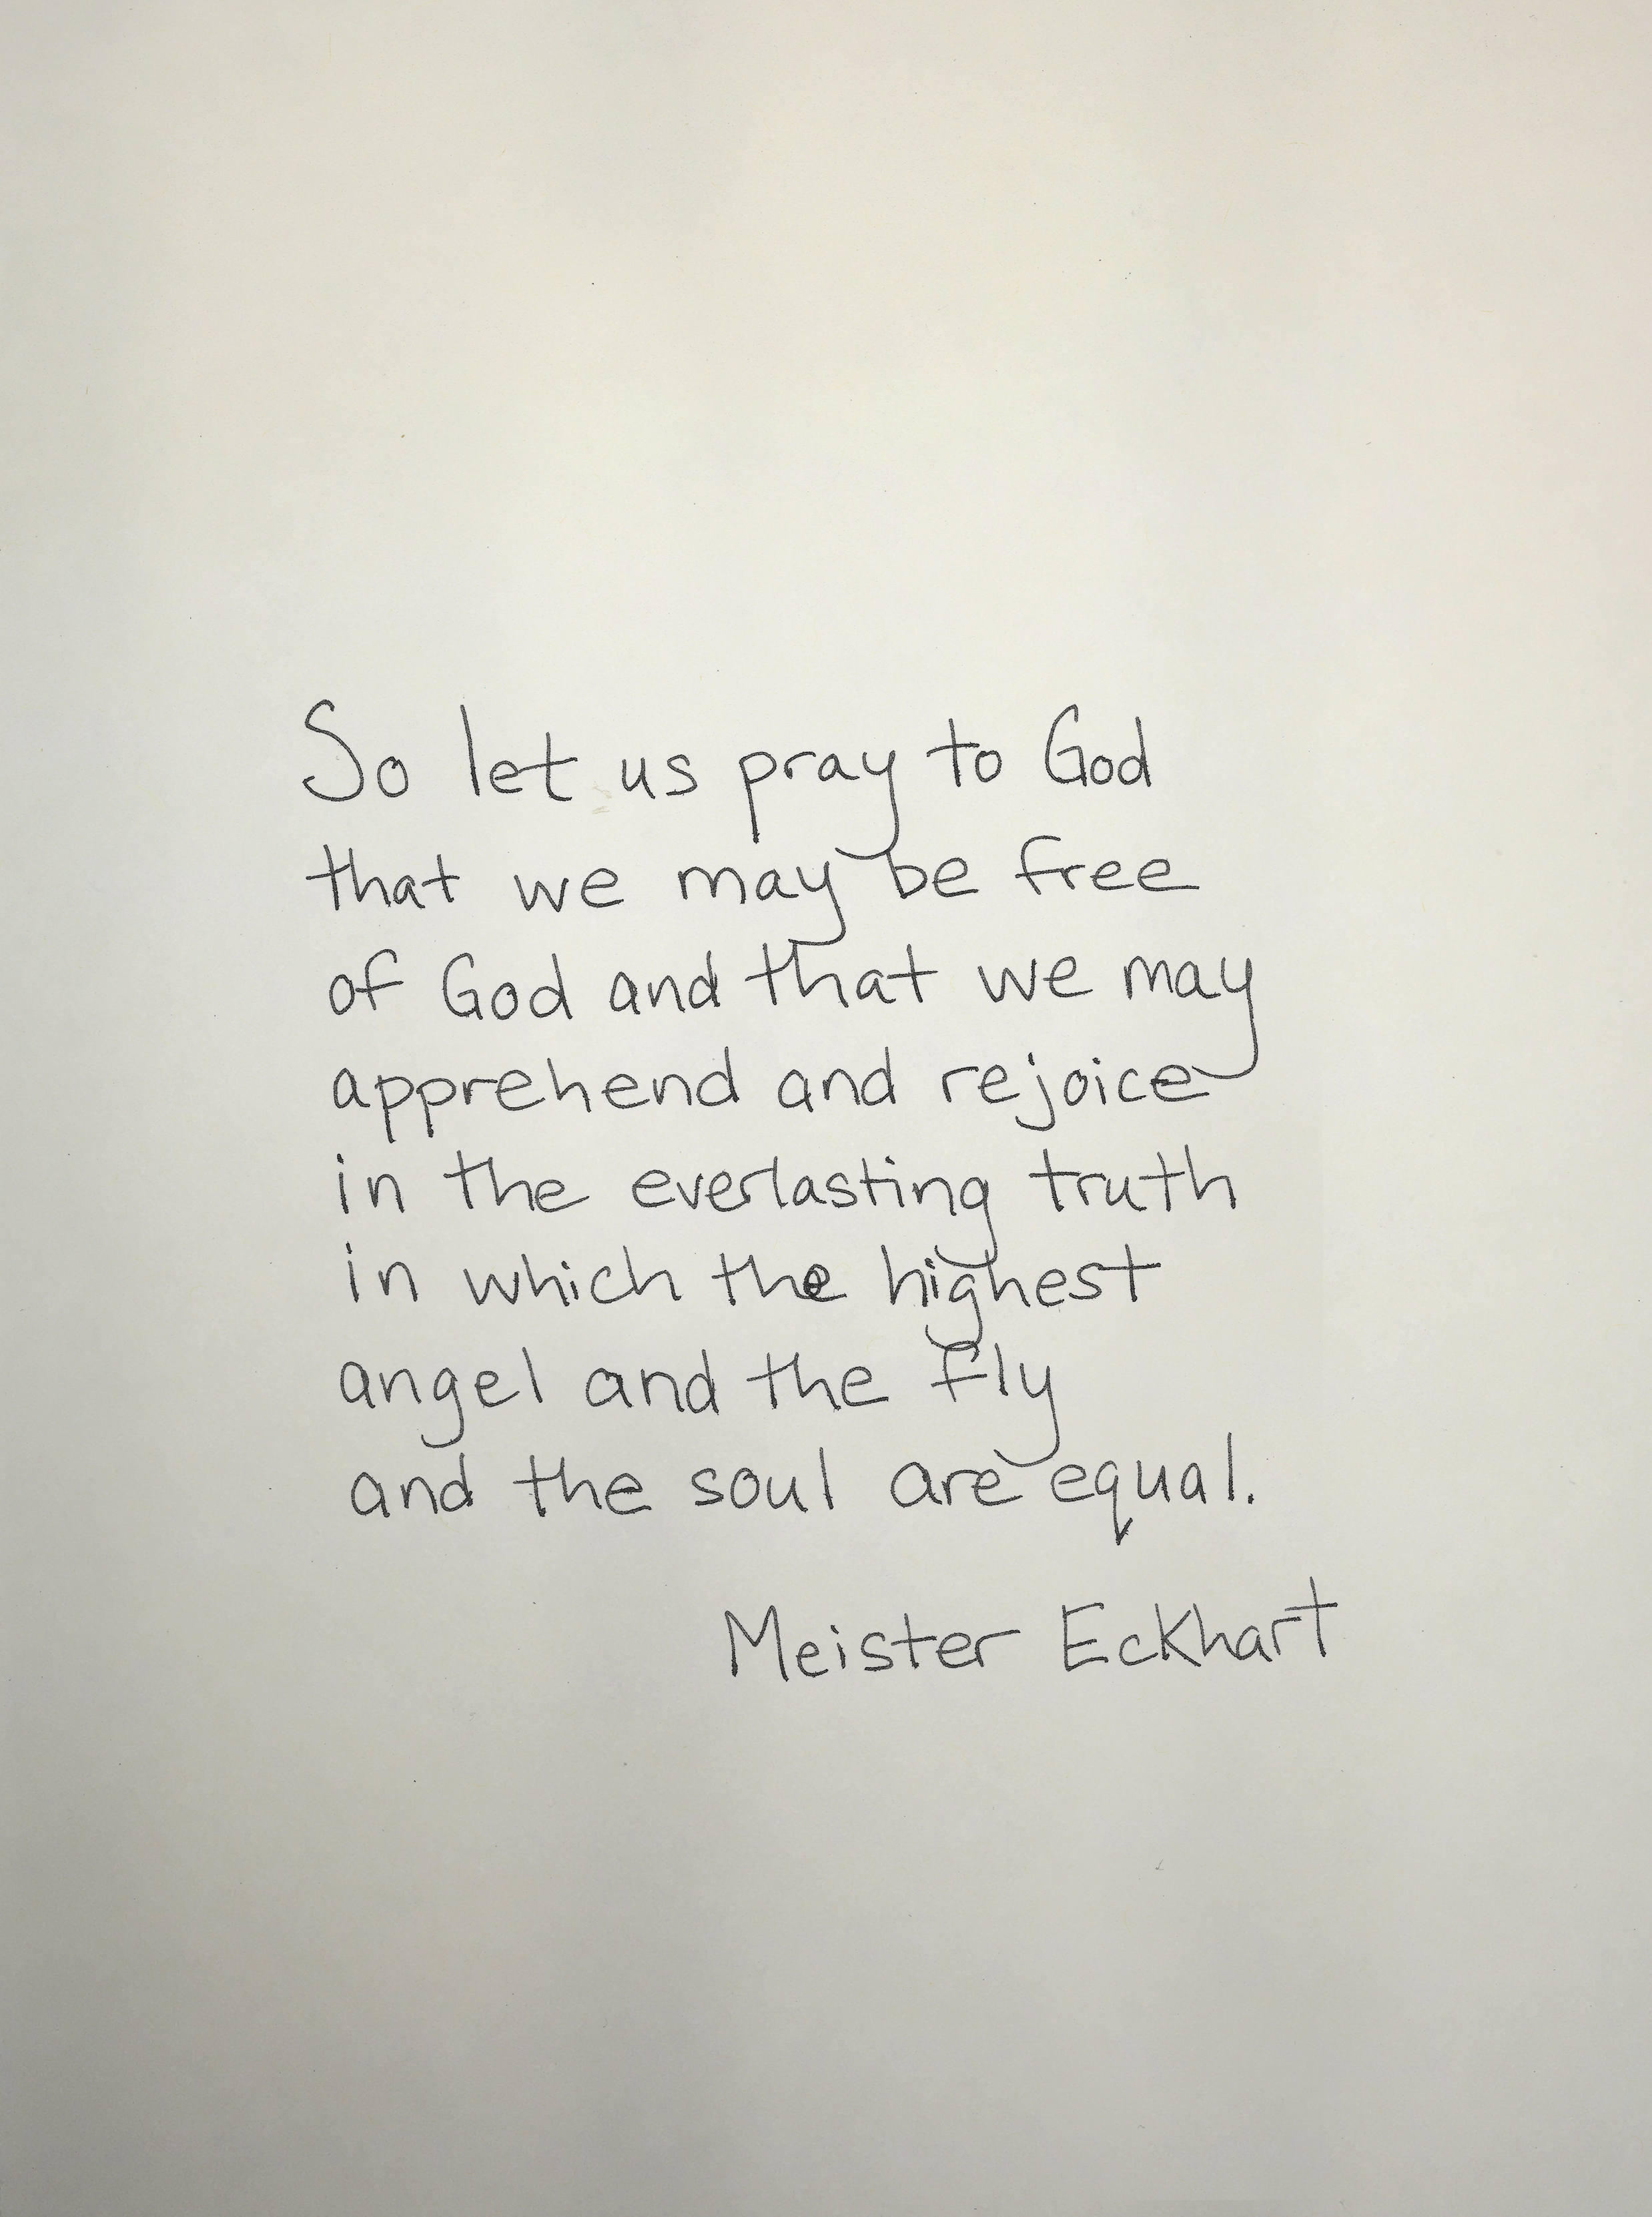 So let us pray to God
that we may be free
of God and that we may
apprehend and rejoice
in the everlasting truth
in which the highest
angel and the fly
and the soul are equal.
Meister Eckhart